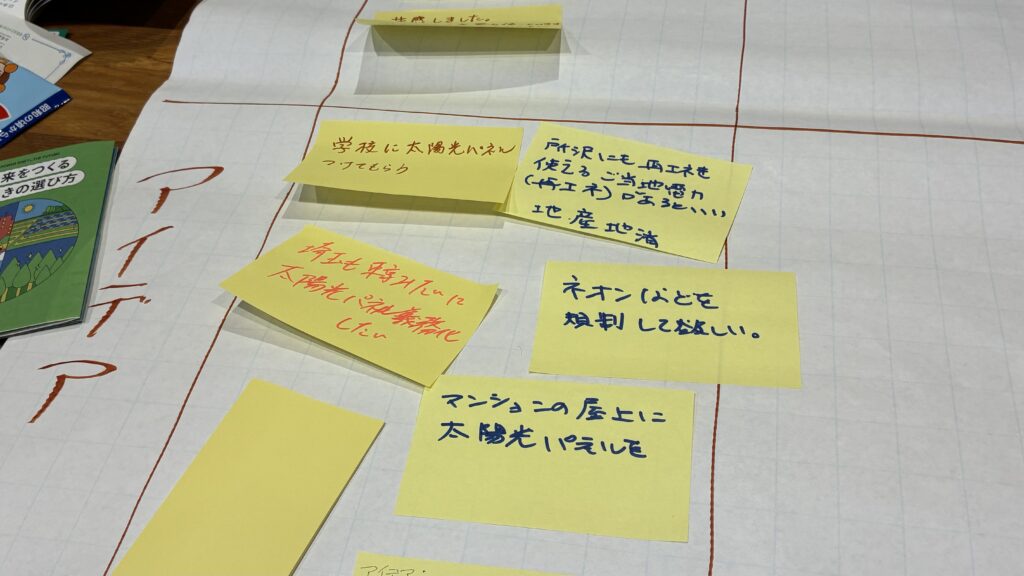 共感しました。
学校に太陽光パネル
つけてもらう
所沢にも再エネを
使えるご当地電力
(再エネ)があるといい
地産地消
埼玉も東京みたいに
太陽光パネル義務化
したい
ネオンなどを
規制して欲しい。
マンションの屋上に
太陽光パネルを
アイデア
アイデア・
来をつくる
きの選び方
昭和の頃から